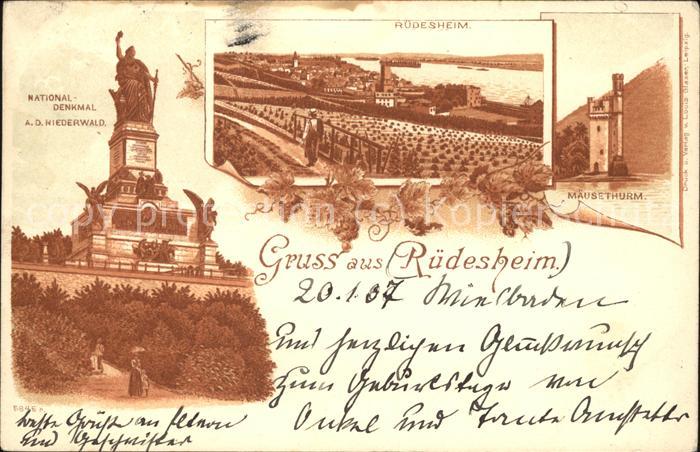 RÜDESHEIM.
NATIONAL-
DENKMAL
A.D. NIEDERWALD.
MÄUSETHURM.
Druck u. Verlag v. Louis Glaser, Leipzig.
Gruss aus (Rüdesheim.)
20.1.07 Wiesbaden
und herzlichen Glückwunsch
zum Geburtstage von
Onkel und Tante
5845
beste Grüße an Eltern
und Geschwister